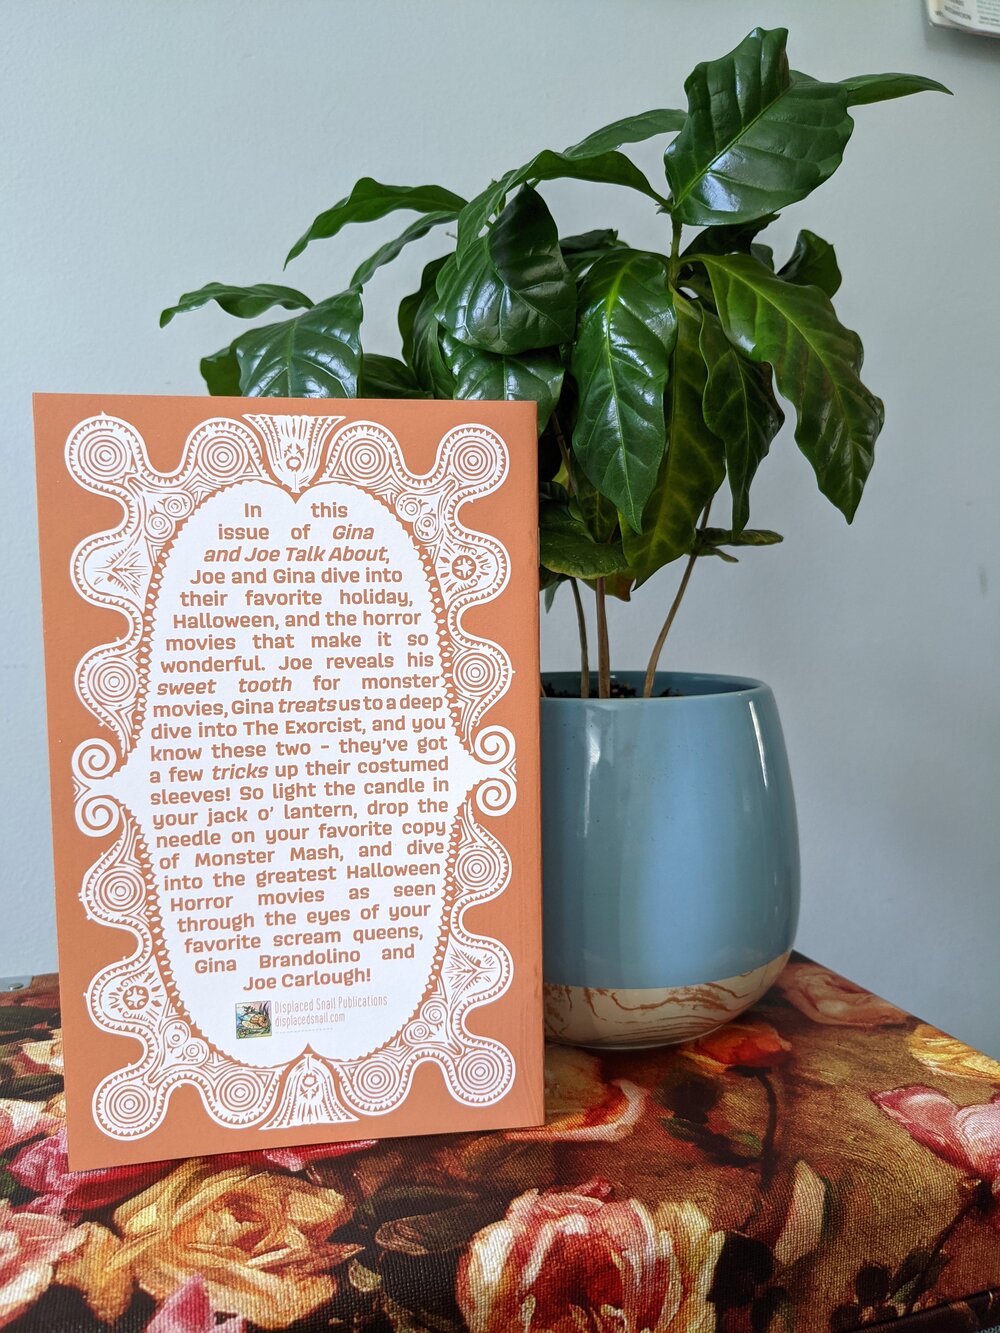 In this
issue of Gina
and Joe Talk About,
Joe and Gina dive into
their favorite holiday,
Halloween, and the horror
movies that make it so
wonderful. Joe reveals his
sweet tooth for monster
movies, Gina treats us to a deep
dive into The Exorcist, and you
know these two - they've got
a few tricks up their costumed
sleeves! So light the candle in
your jack o' lantern, drop the
needle on your favorite copy
of Monster Mash, and dive
into the greatest Halloween
Horror movies as seen
through the eyes of your
favorite scream queens,
Gina Brandolino and
Joe Carlough!
Displaced Snail Publications
displacedsnail.com